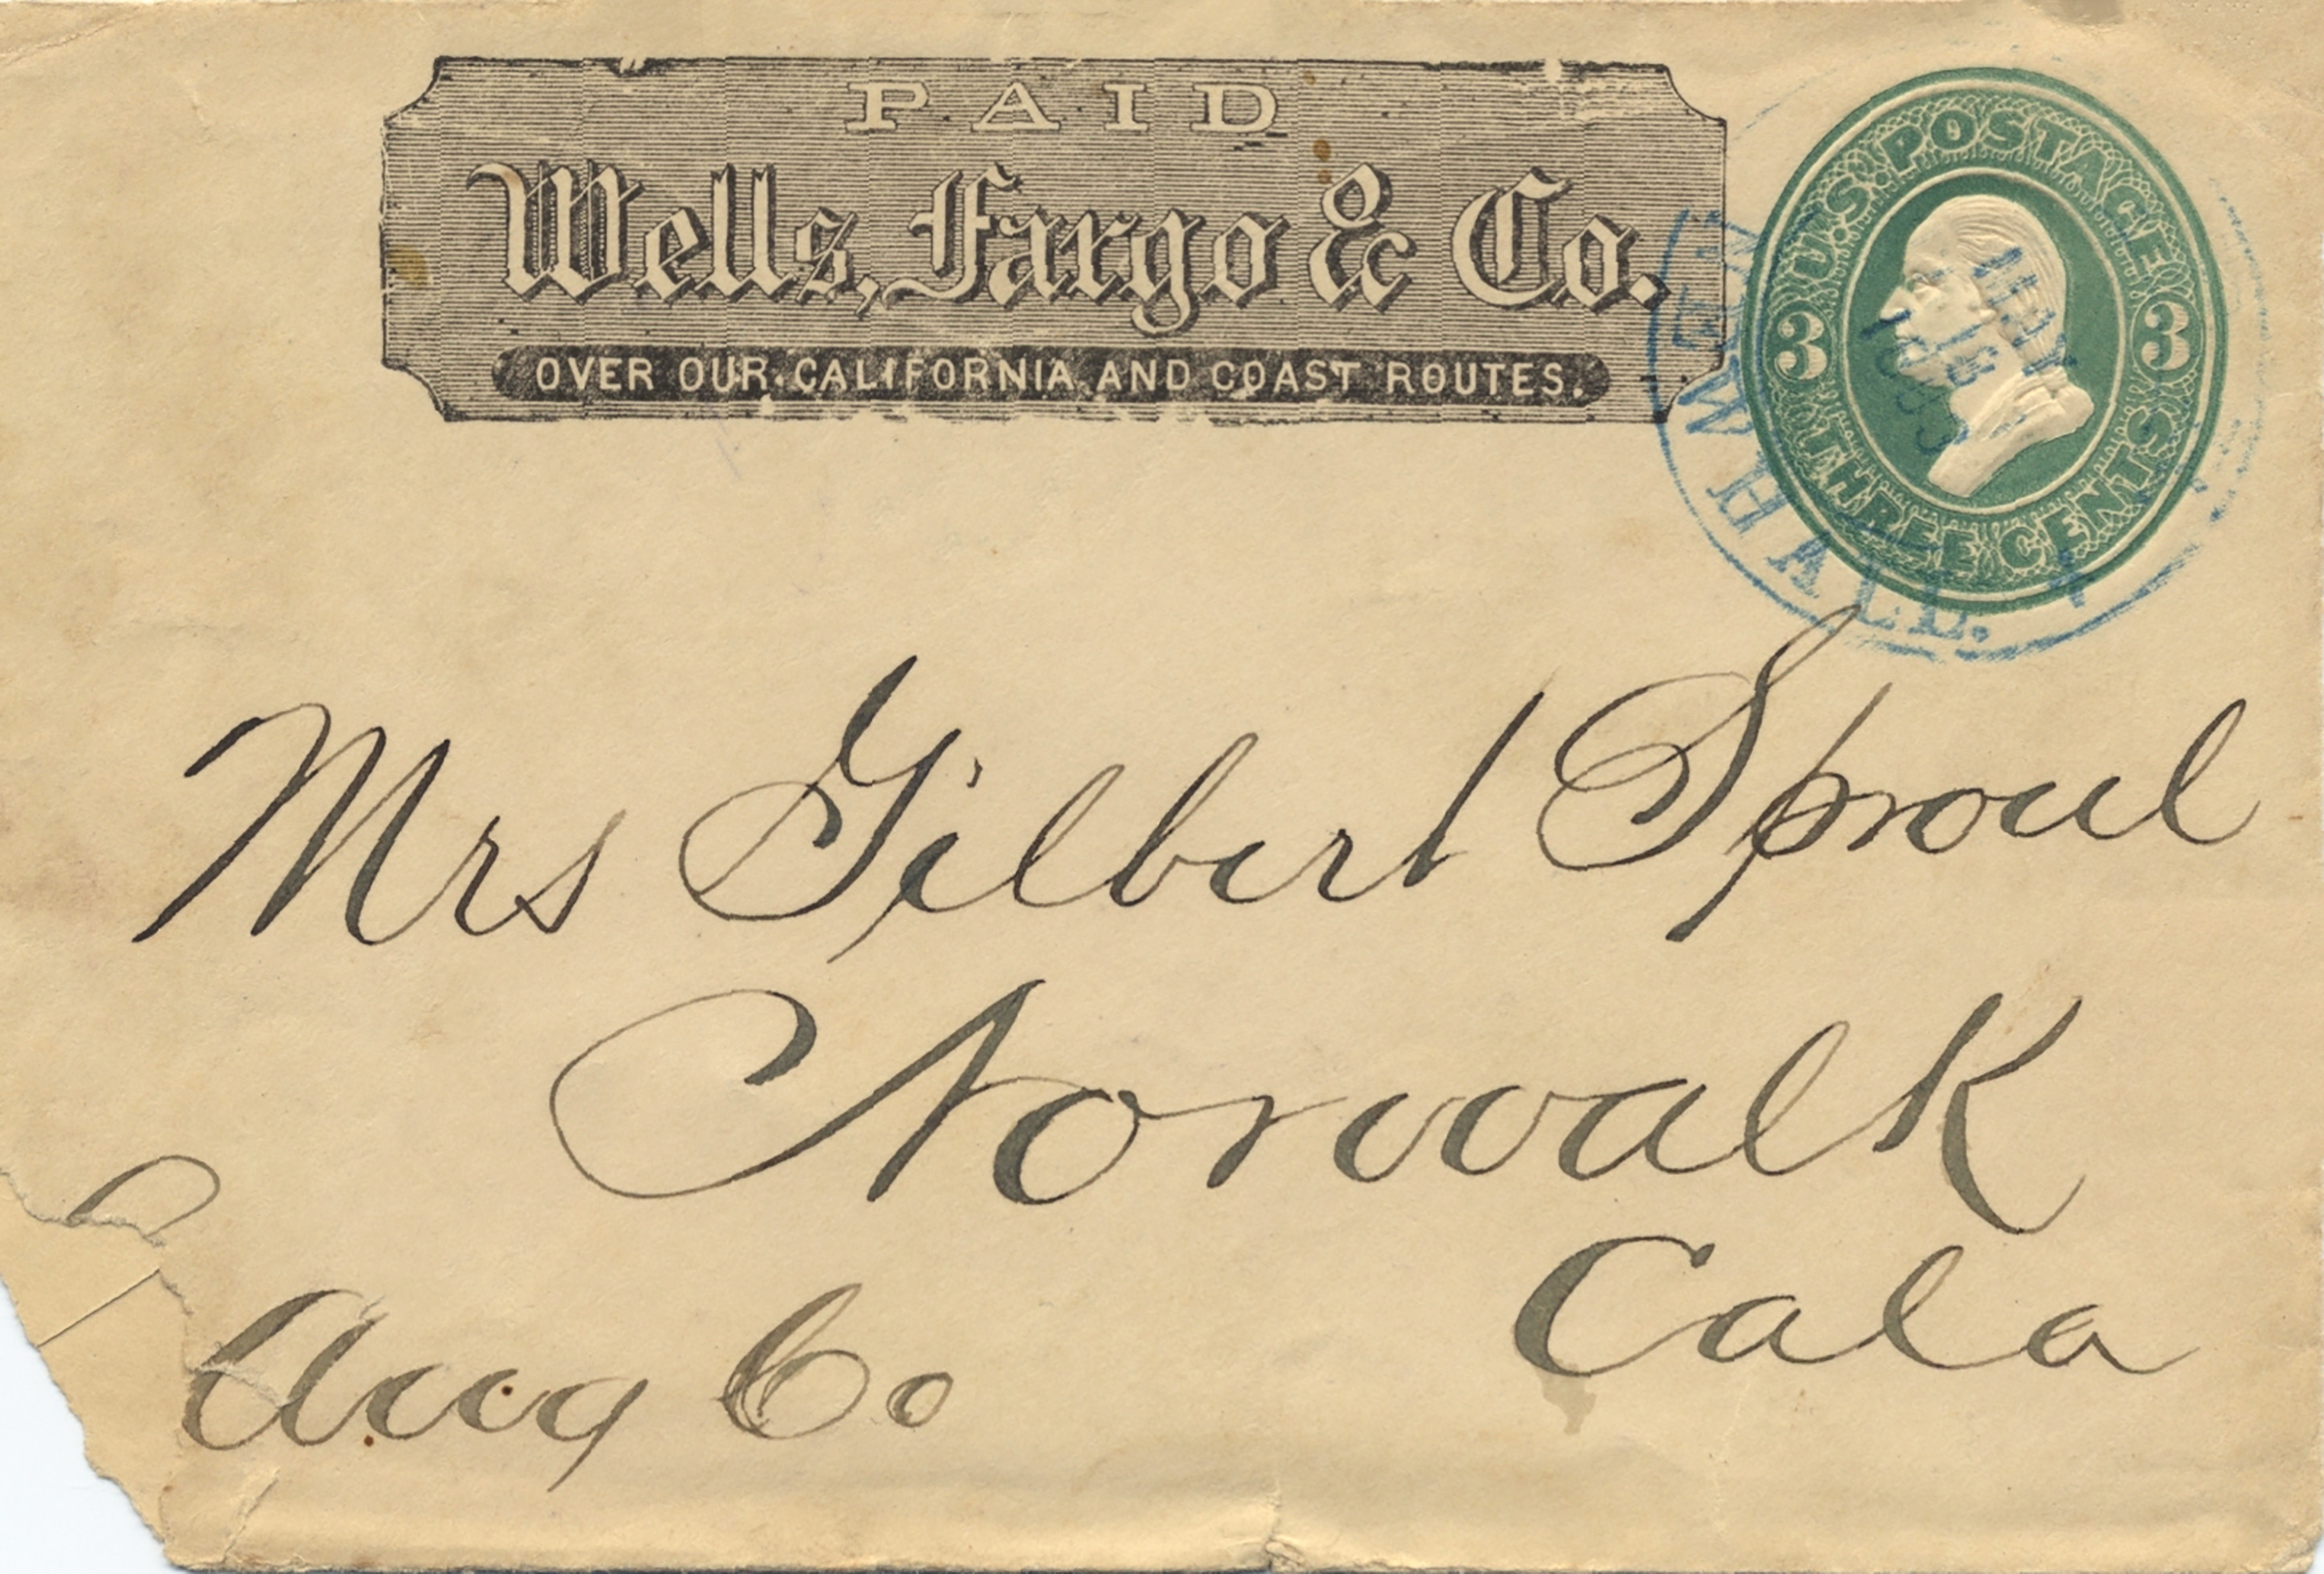 PAID
Wells, Fargo & Co.
OVER OUR CALIFORNIA AND COAST ROUTES.
U.S. POSTAGE
3 3
THREE CENTS
NEWHALL.
MAY
18
Mrs Gilbert Sproul
Norwalk
Cala
Co